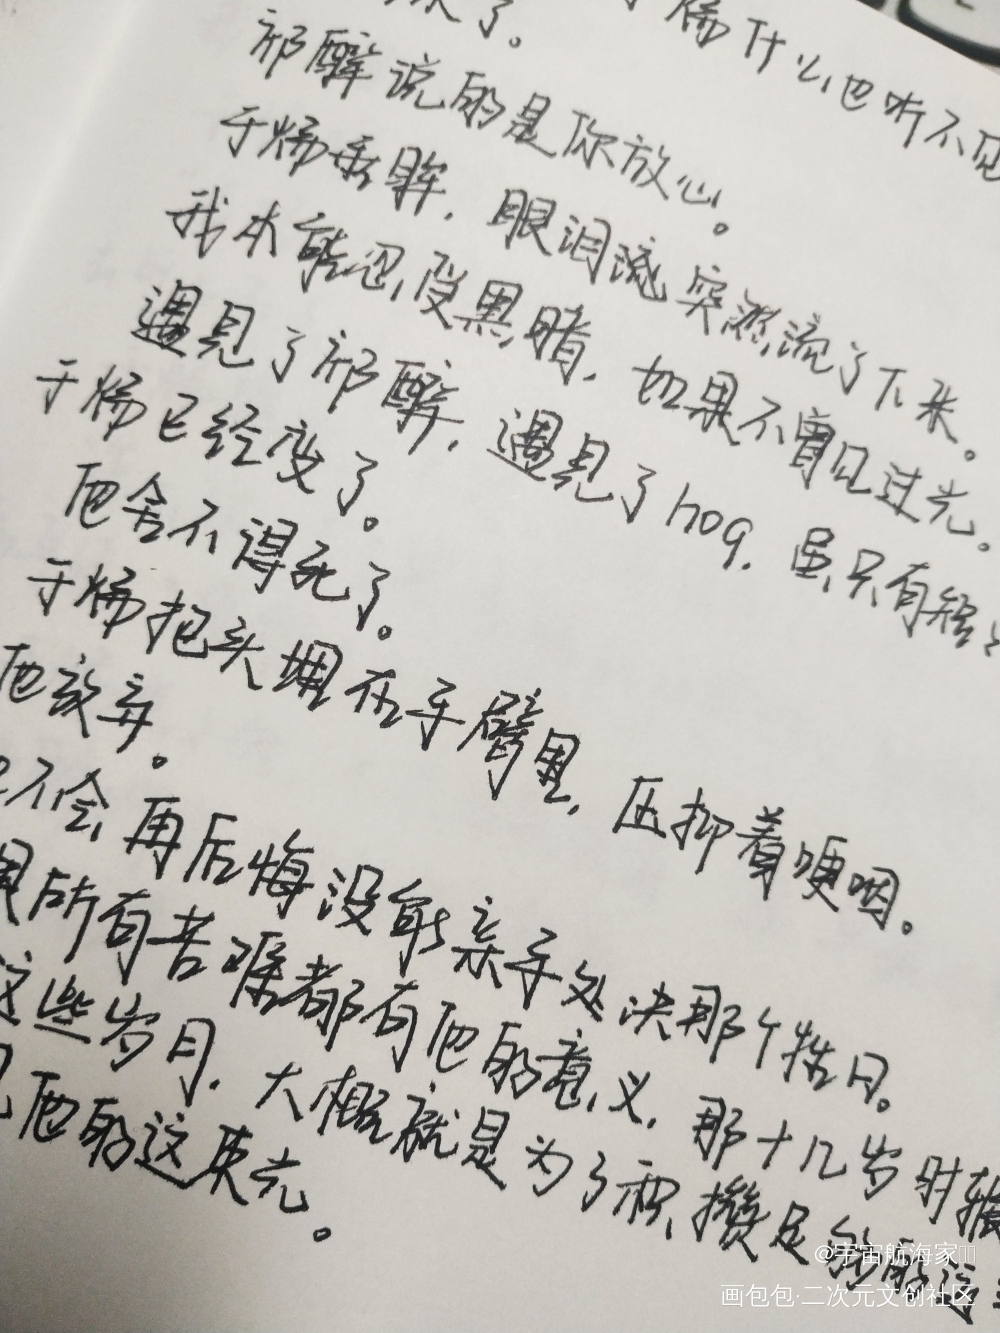 了。 炀什么也听不见
祁醉说的是你放心。
于炀垂眸，眼泪流突然流了下来。
我本能忍受黑暗，如果不曾见过光。
遇见了祁醉，遇见了hog，虽只有短
于炀已经变了。
他舍不得死了。
于炀把头埋在手臂里，压抑着哽咽。
他放弃。
不会再后悔没能亲手处决那个牲口。
所有苦难都有他的意义，那十几岁时
这些岁月，大概就是为了积攒足够的
他的这束光。
@宇宙航海家
画包包·二次元文创社区